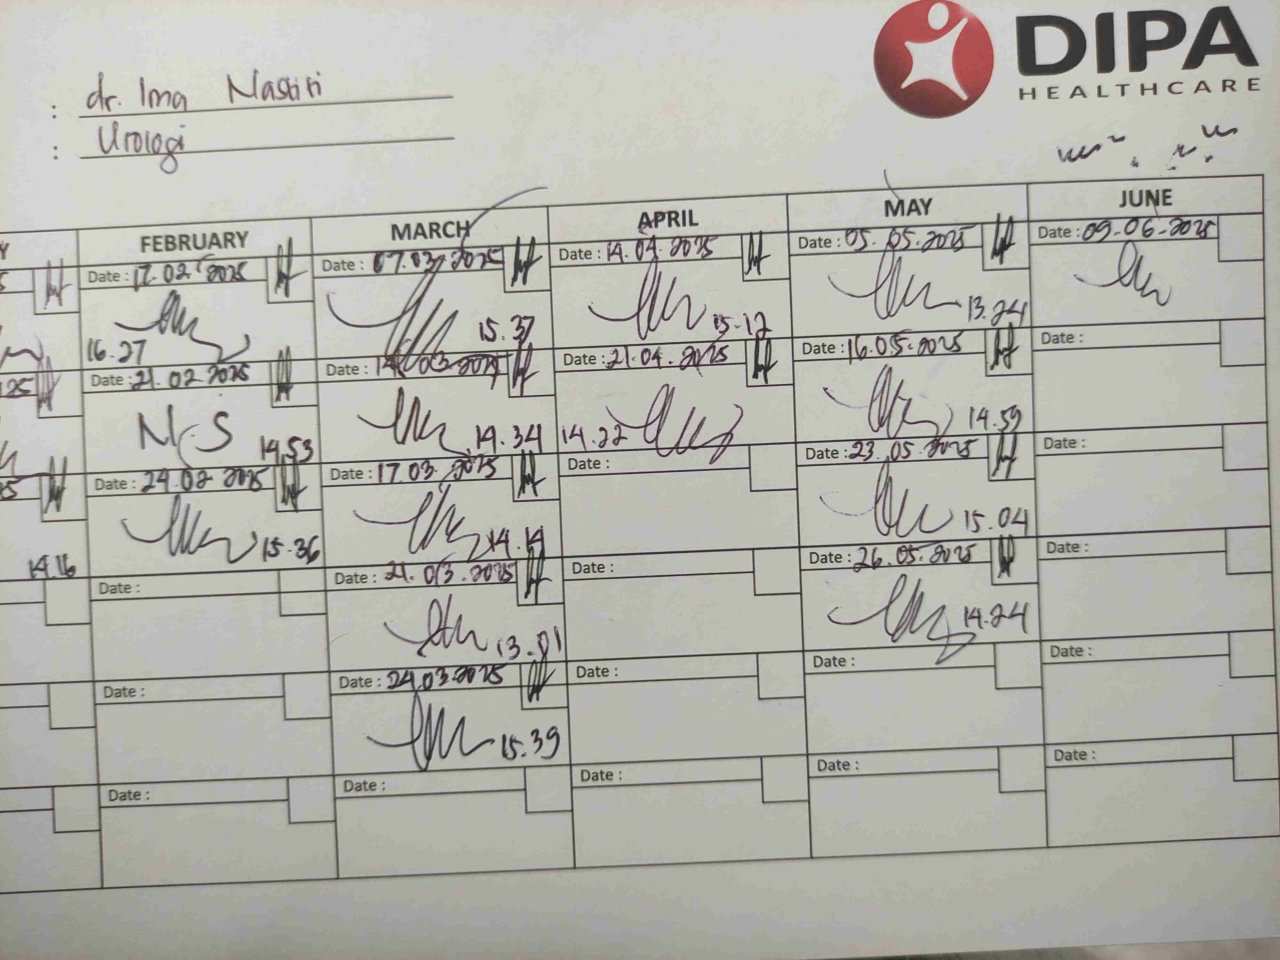 DIPA
HEALTHCARE
: dr. Ima Nastiti
: Urologi
FEBRUARY MARCH APRIL MAY JUNE
Date : 17.02.2025 Date : 07.03.2025 Date : 14.04.2025 Date : 05.05.2025 Date : 09-06-2025
16.27 15.37 15.12 13.24
Date : 21.02.2025 Date : 14.03.2025 Date : 21.04.2025 Date : 16.05.2025 Date :
N.S 14.53 14.34 14.22 14.59
Date : 24.02.2025 Date : 17.03.2025 Date : Date : 23.05.2025 Date :
14.16 15.36 14.14 15.04
Date : Date : 21.03.2025 Date : Date : 26.05.2025 Date :
13.01 14.24
Date : Date : 24.03.2025 Date : Date : Date :
15.39
Date : Date : Date : Date : Date :